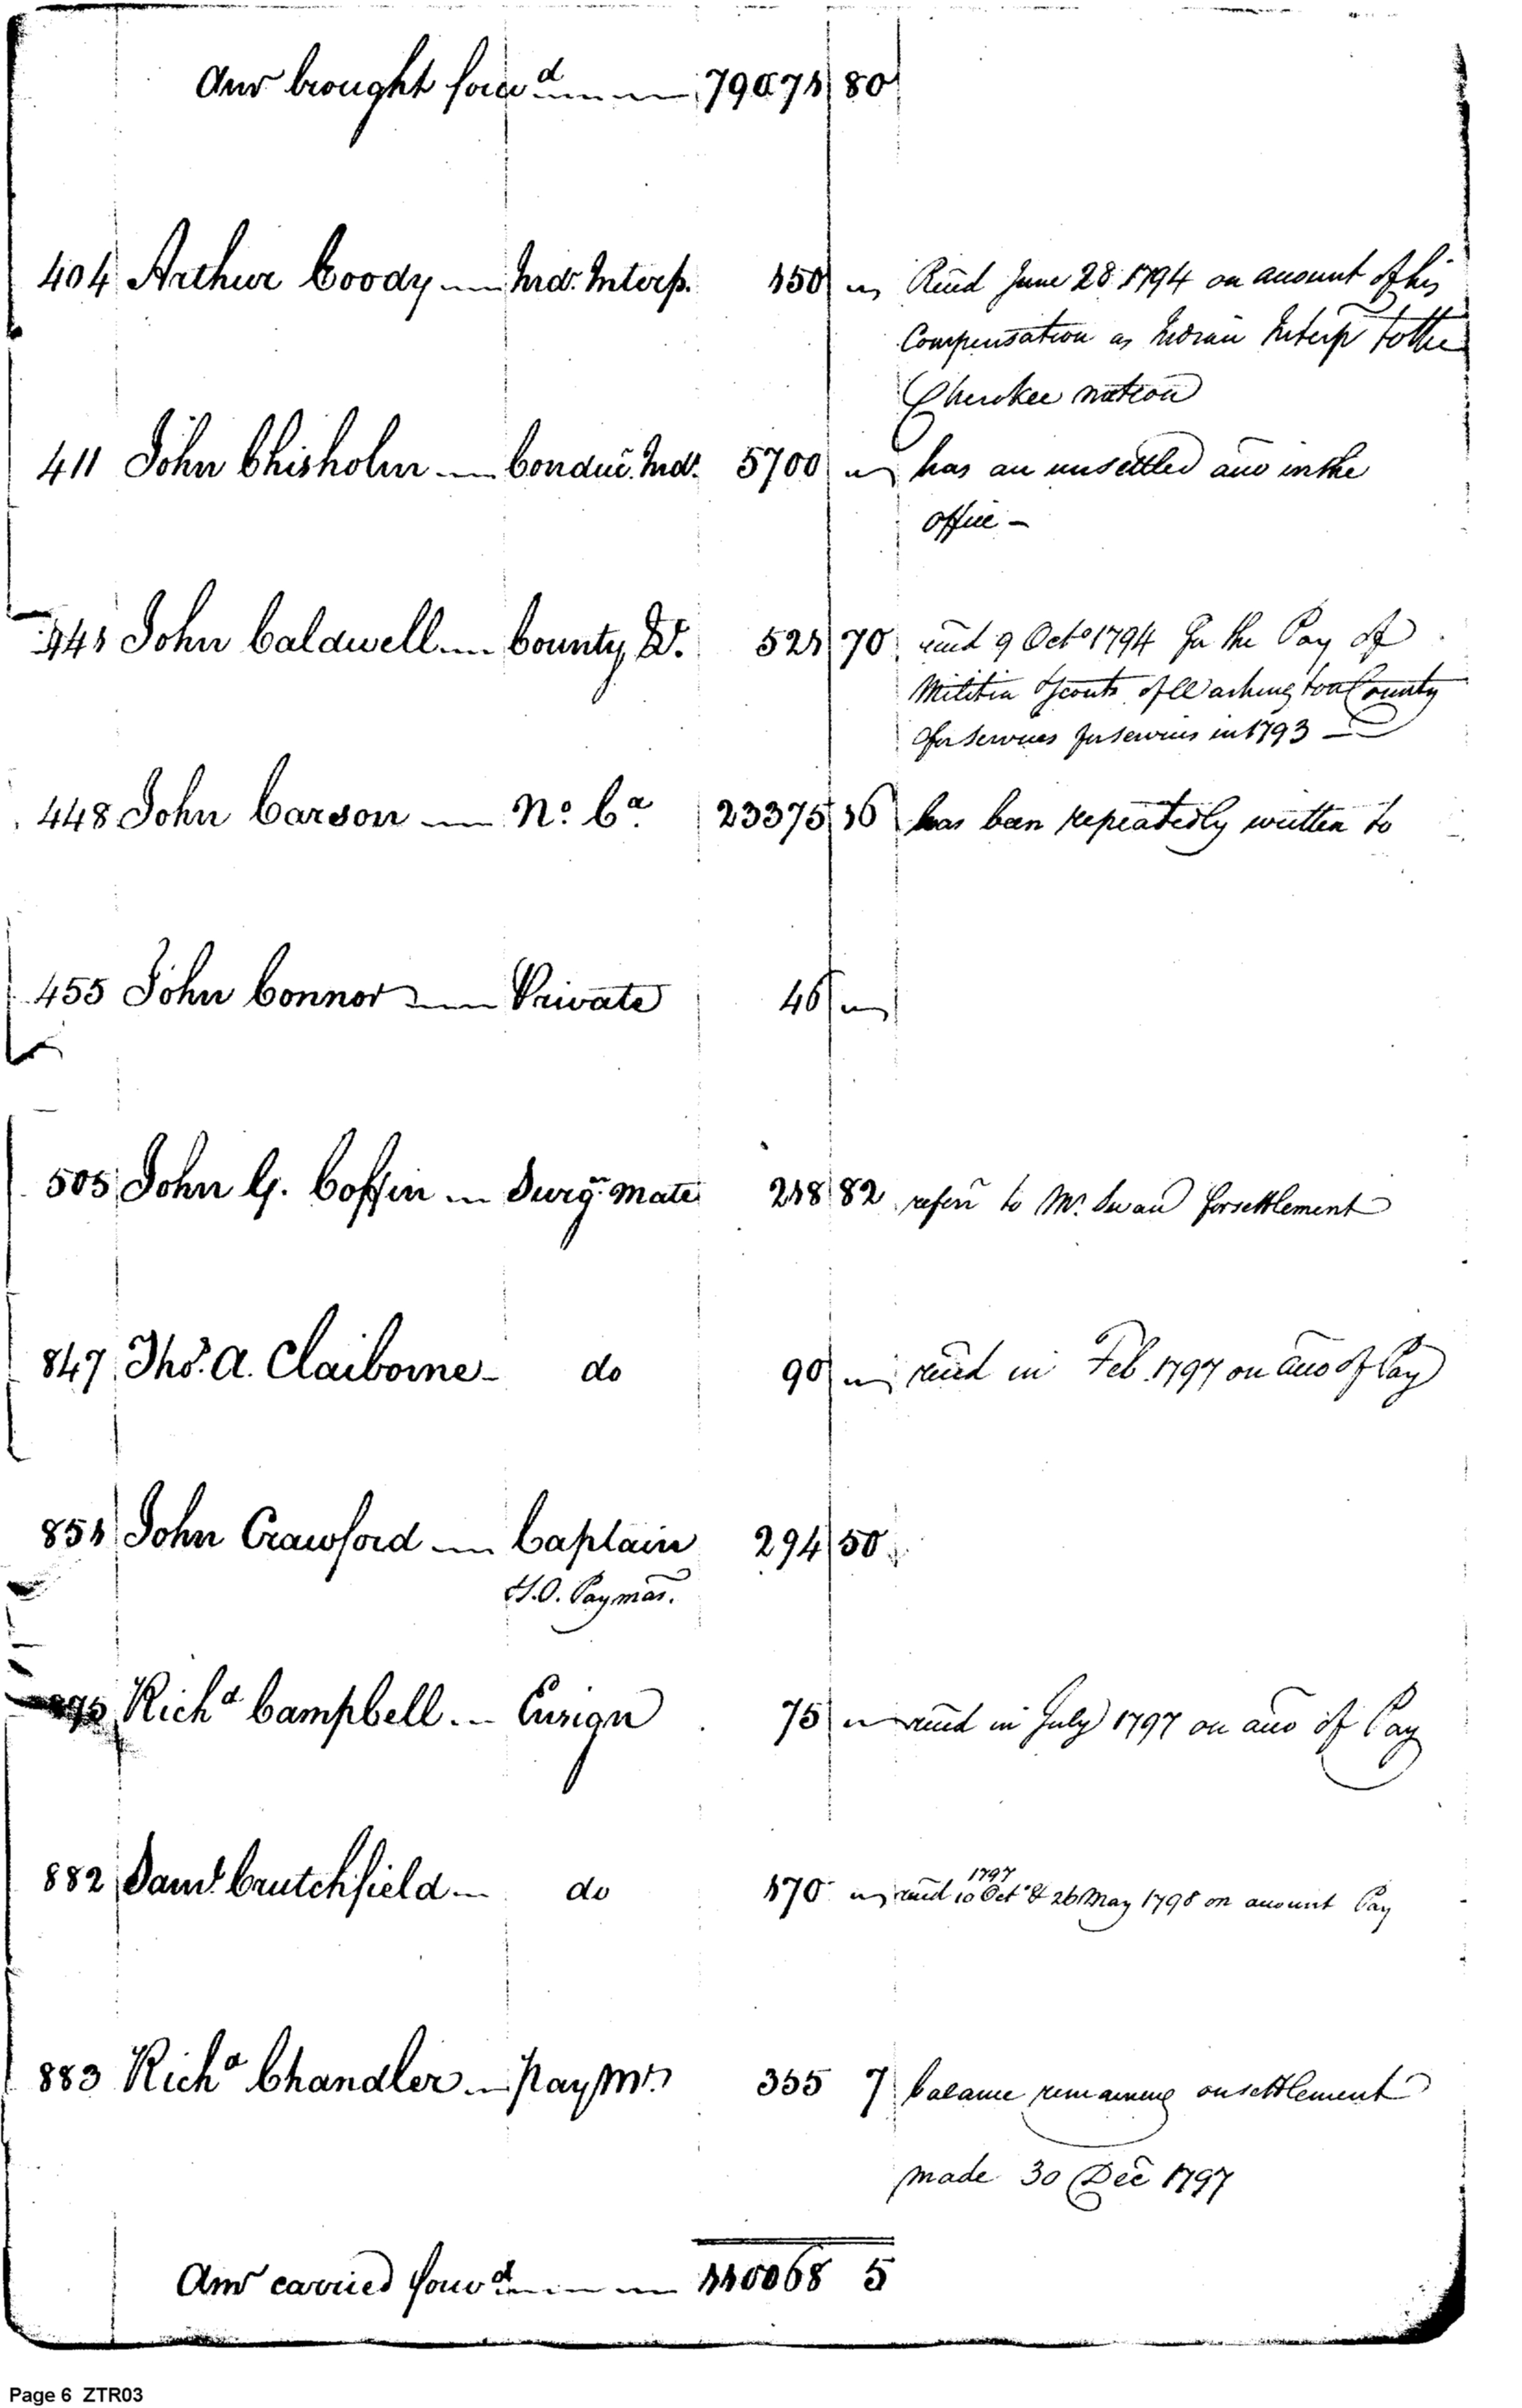 Amt brought forwd 79071 80
404 Arthur Coody Ind. Interp. 150 Recd June 28 1794 on account of his
Compensation as Indian Interp to the
Cherokee nation
411 John Chisholm Conduc. Ind. 5700 has an unsettled acco in the
office –
441 John Caldwell County Lt. 521 70 recd 9 Octo 1794 for the Pay of
Militia Scouts of Washington County
for services for services in 1793 –
448 John Carson No. Ca. 23375 16 has been repeatedly written to
455 John Connor Private 46
505 John G. Coffin Surgn. Mate 218 82 referr to Mr. Swan for settlement
847 Thos. A. Claiborne do 90 recd in Feb. 1797 on acco of Pay
851 John Crawford Captain 294 50
H.O. Paymas.
Richd Campbell Ensign 75 recd in July 1797 on acco of Pay
1797
882 Saml. Crutchfield do 170 recd 10 Oct & 26 May 1798 on account Pay
883 Richd Chandler Paymr. 355 7 balance remaining on settlement
made 30 Dec 1797
Amt carried forwd 110068 5
Page 6 ZTR03